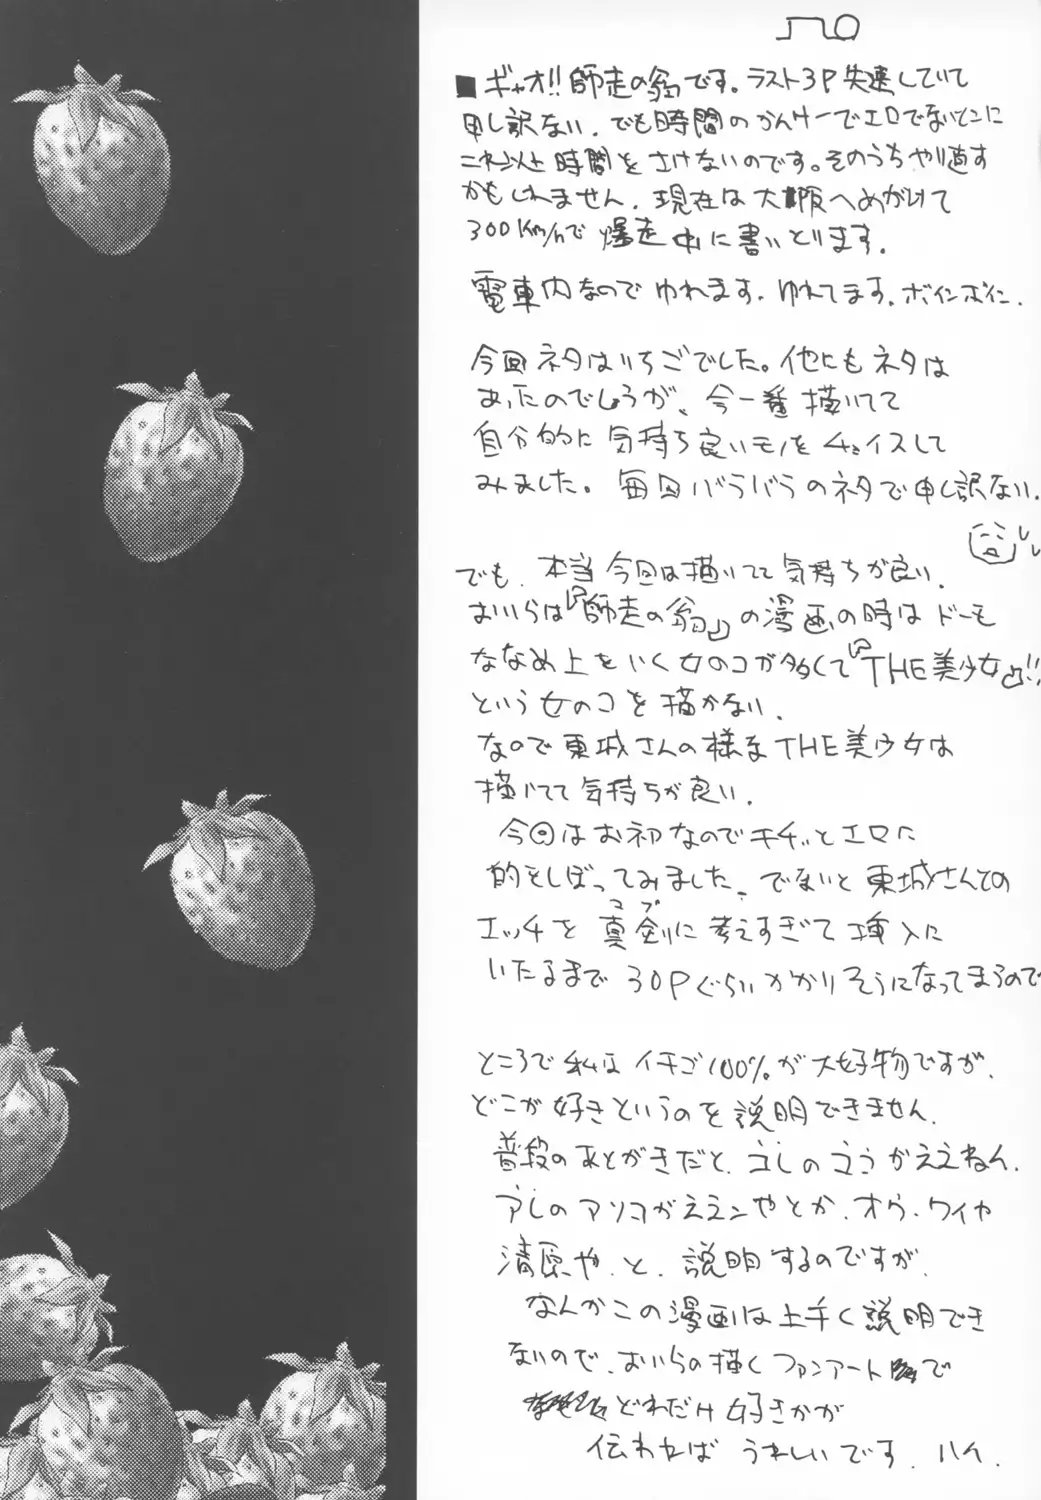 ■ギャオ!!師走の翁です。ラスト3P失速していて
申し訳ない。でも時間のかんけーでエロでないとこに
これ以上時間をさけないのです。そのうちやり直す
かもしれません。現在は大阪へめがけて
300Km/hで爆走中に書いとります。
電車内なのでゆれます。ゆれてます。ボインボイン。
今回ネタはいちごでした。他にもネタは
あったのでしょうが、今一番描いてて
自分的に気持ち良いモノをチョイスして
みました。毎回バラバラのネタで申し訳ない。
でも、本当今回は描いてて気持ちが良い。
おいらは『師走の翁』の漫画の時はドーモ
ななめ上をいく女のコが多くて『THE美少女』!!
という女のコを描かない。
なので東城さんの様なTHE美少女は
描いてて気持ちが良い。
今回はお初なのでキチッとエロに
的をしぼってみました。でないと東城さんての
エッチを真剣に考えすぎて挿入に
いたるまで30Pぐらいかかりそうになってまうので
ところで私はイチゴ100%が大好物ですが、
どこが好きというのを説明できません。
普段のあとがきだと、コレのココがええねん。
アレのアソコがええンやとか、オウ、ワイや
清原や、と、説明するのですが、
なんかこの漫画は上手く説明でき
ないので、おいらの描くファンアートで
どれだけ好きかが
伝われば うれしいです。ハイ。